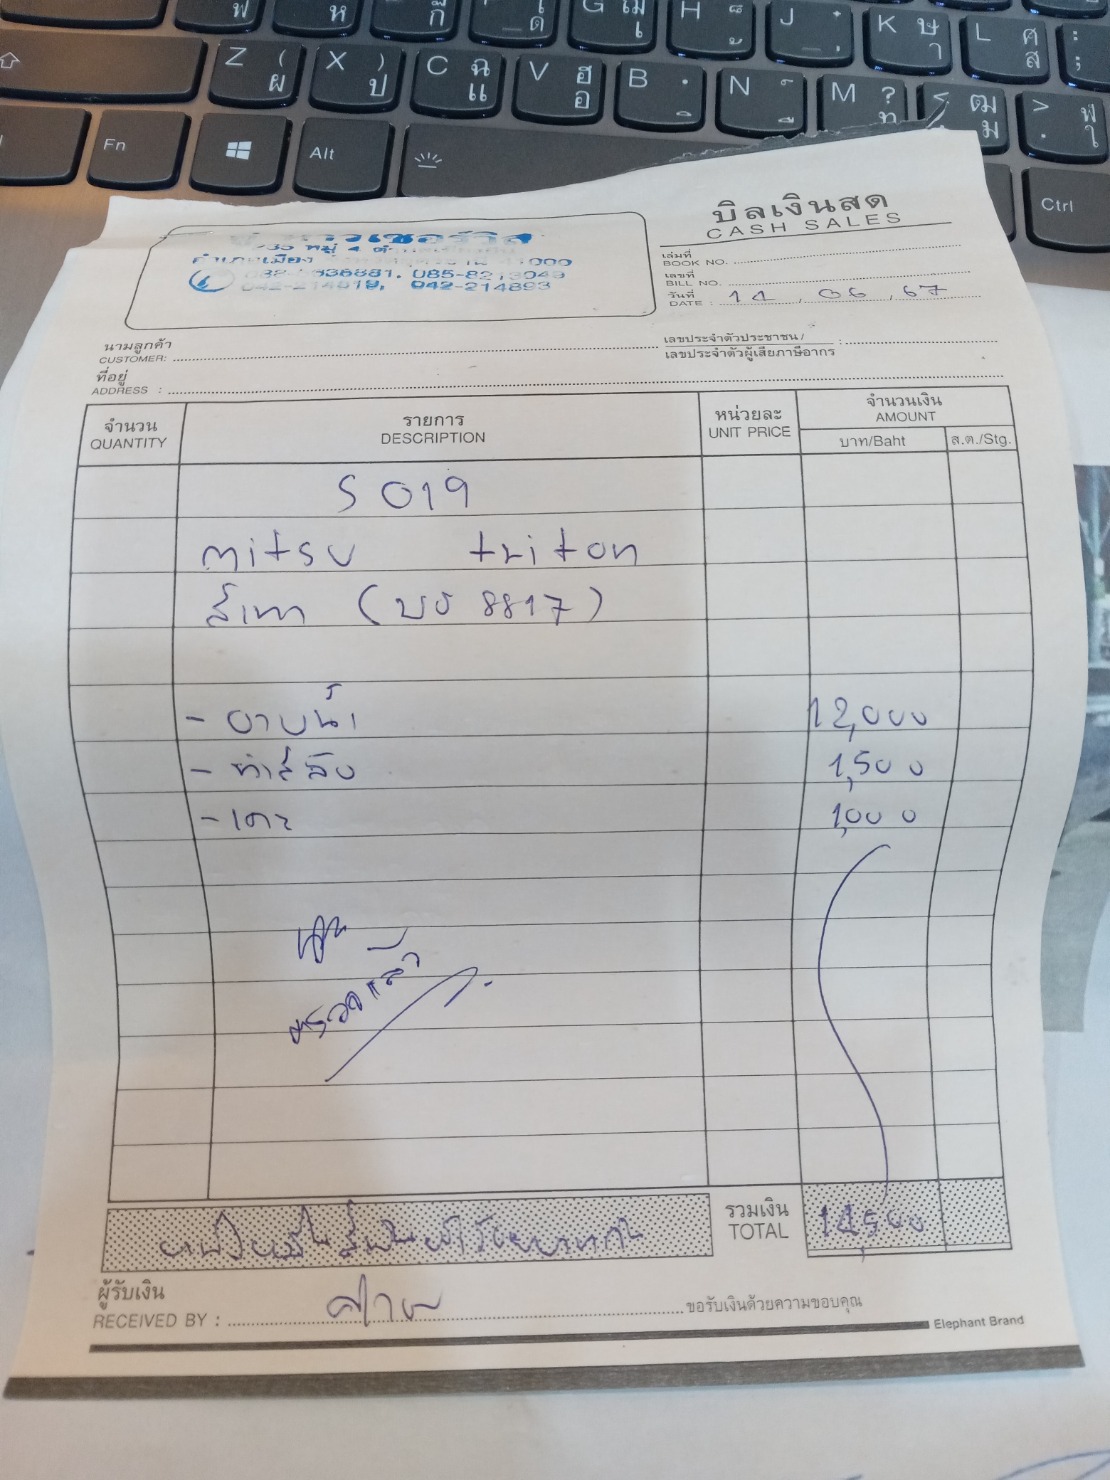 ฟ ห กี _ด G เ H ้ J K ษ า L ศ ส : ;
Z ( ผ X ) ป C ฉ แ V ฮ อ B N M ? ท ฒ ม > . ฬ ใ
Fn Alt Ctrl
บิลเงินสด
CASH SALES
หมู่ 4
อำเภอเมือง 41000
085-8213049
042-214819, 042-214893
เล่มที่
BOOK NO.
เลขที่
BILL NO.
วันที่
DATE : 14 , 06 , 67
นามลูกค้า
CUSTOMER:
เลขประจำตัวประชาชน/
เลขประจำตัวผู้เสียภาษีอากร :
ที่อยู่
ADDRESS :
จำนวน
QUANTITY
รายการ
DESCRIPTION
หน่วยละ
UNIT PRICE
จำนวนเงิน
AMOUNT
บาท/Baht ส.ต./Stg.
S 019
mitsu triton
สีเทา (บจ 8817)
- อาบน้ำ 12,000
1,500
- เคาะ 1,000
ตรวจแล้ว
รวมเงิน
TOTAL
14,500
ผู้รับเงิน
RECEIVED BY :
ขอรับเงินด้วยความขอบคุณ
Elephant Brand